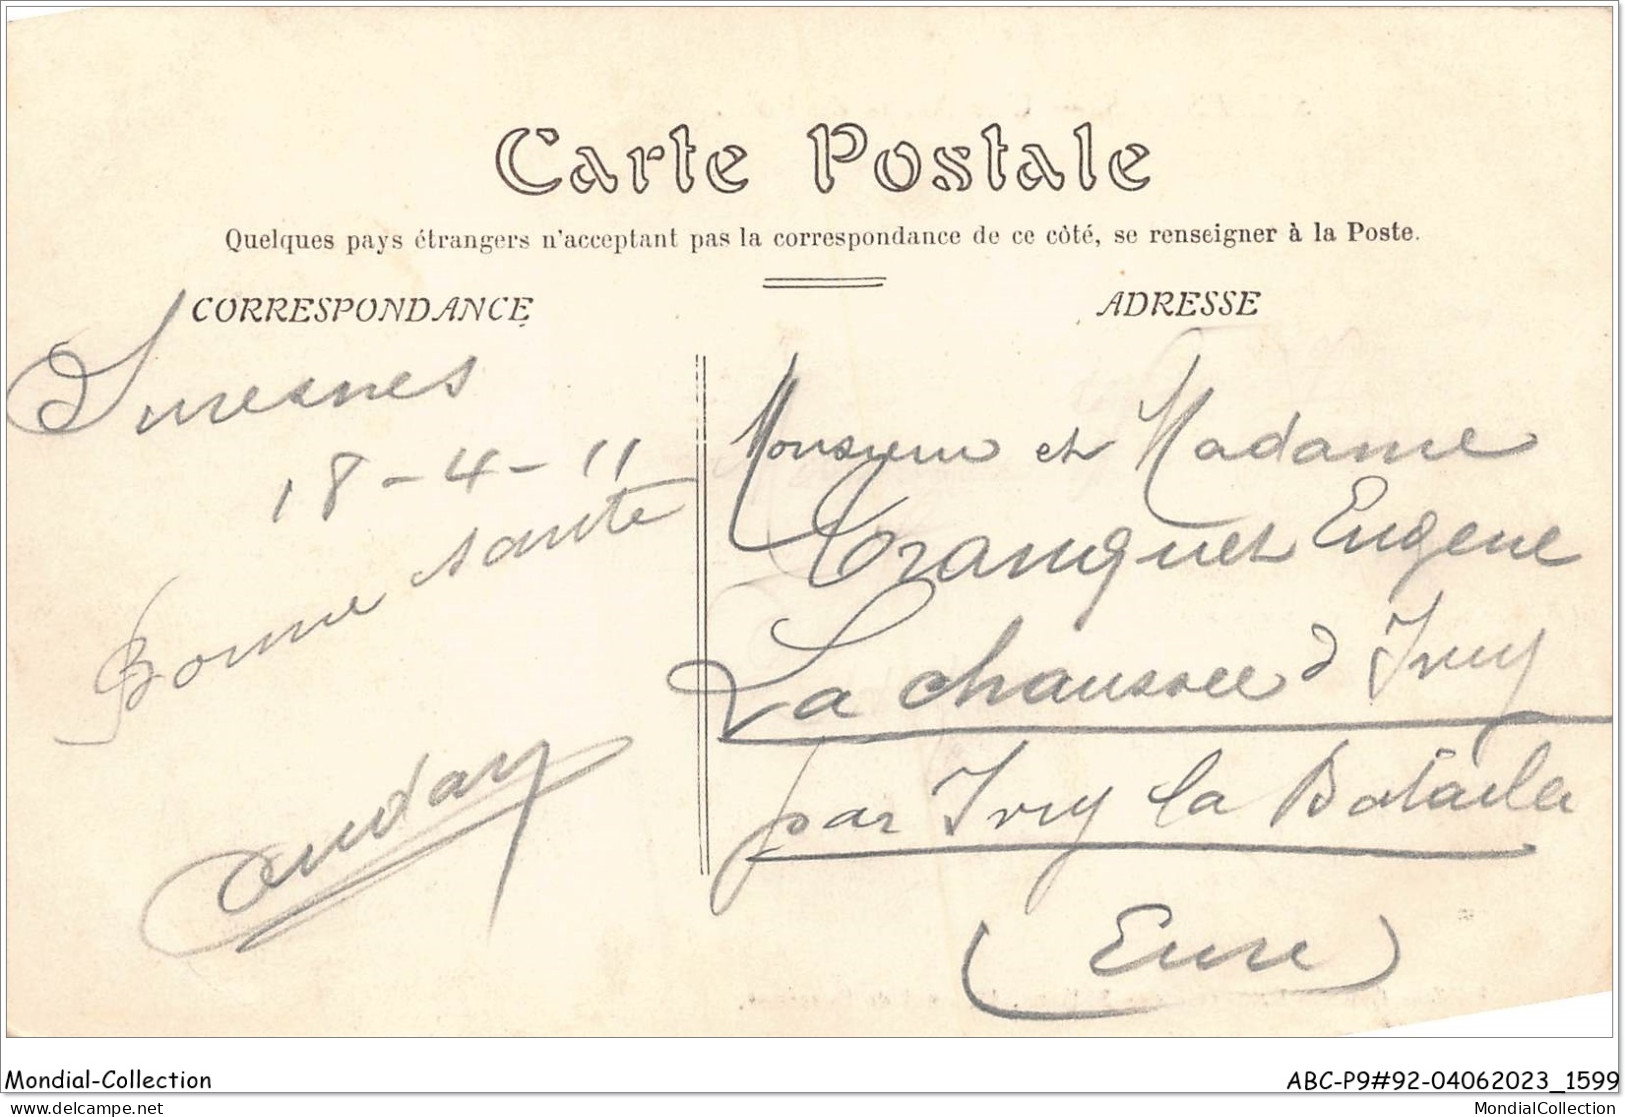 Carte Postale
Quelques pays étrangers n'acceptant pas la correspondance de ce côté, se renseigner à la Poste.
CORRESPONDANCE
Suresnes
18-4-11
Bonne santé
ADRESSE
Monsieur et Madame
Tranquet Eugene
La chaussee d'Ivry
par Ivry la Bataille
(Eure)
Mondial-Collection
ABC-P9#92-04062023_1599
delcampe.net
MondialCollection